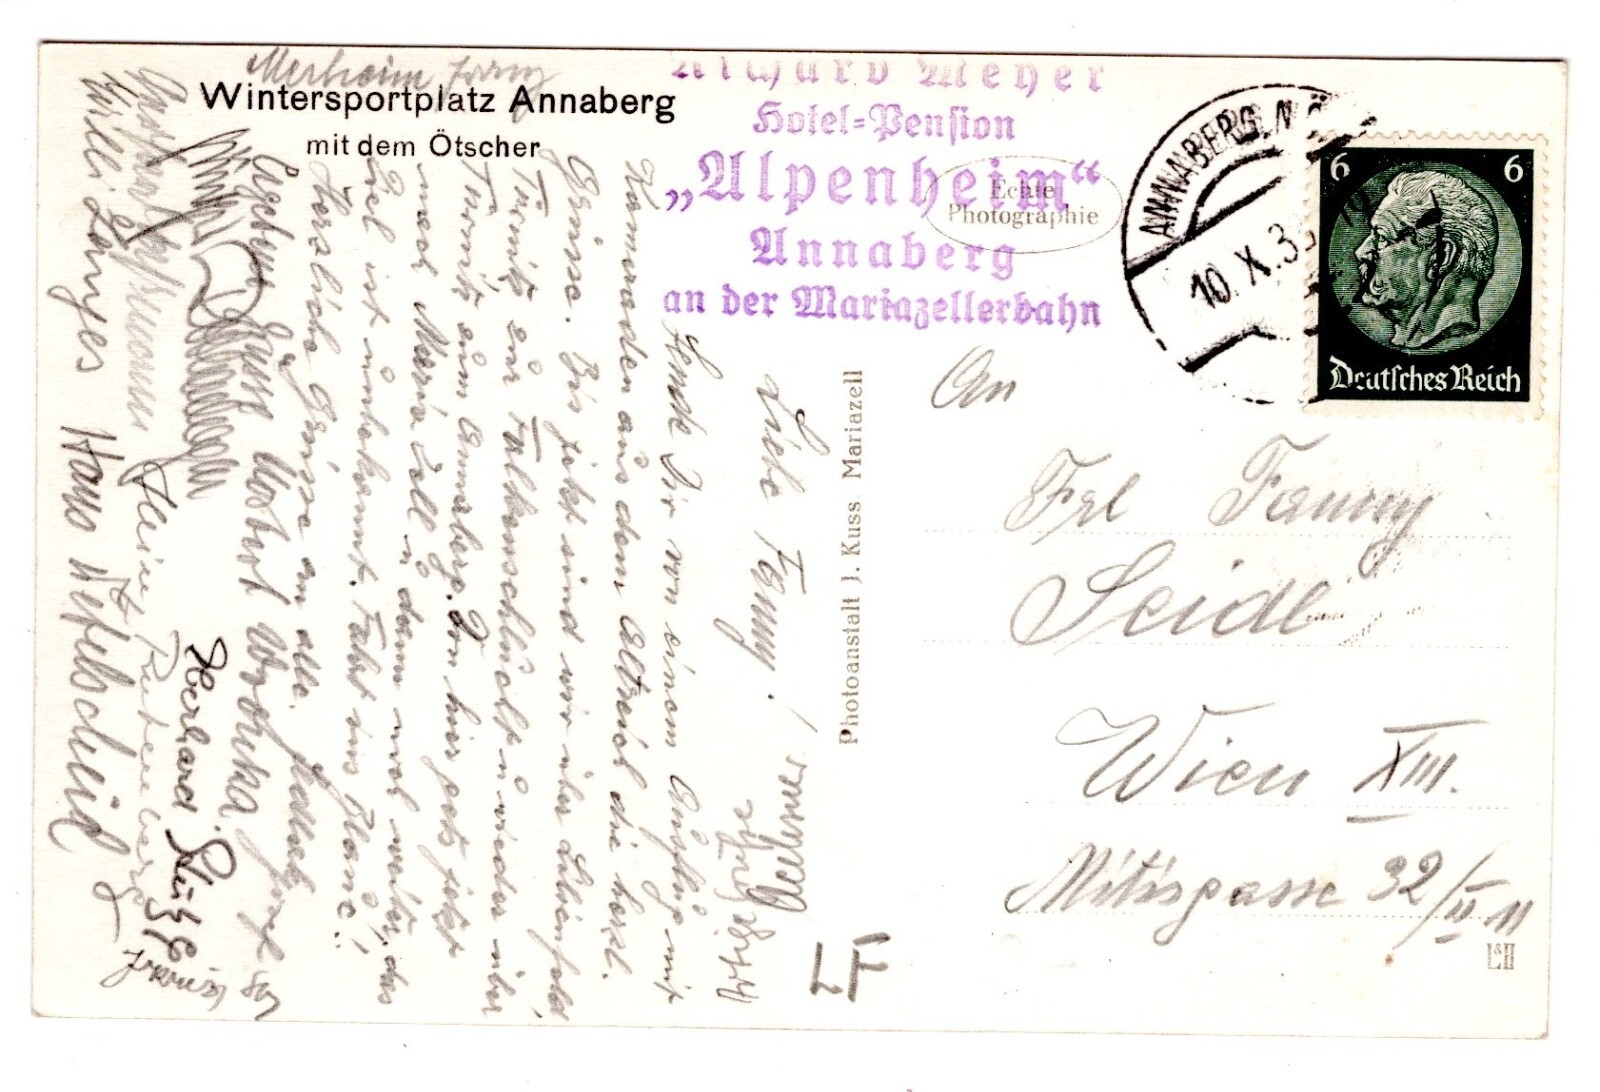 Wintersportplatz Annaberg
mit dem Ötscher
Richard Meyer
Hotel-Pension
„Alpenheim“
Annaberg
an der Mariazellerbahn
Echte
Photographie
ANNABERG, N.Ö.
10. X. 3
6 6
Deutsches Reich
Liebe Fanny!
Sende Dir von einem Ausflug mit
Kameraden aus dem Altreich die herzl.
Grüsse. Bis jetzt sind wir über Lilienfeld
Türnitz zur Falkenschlucht u wieder über
Türnitz zum Annaberg. Von hier gehts jetzt
nach Mariazell u dann noch weiter, das
Ziel ist unbekannt. Fahrt ins Blaue!
Herzliche Grüsse an alle.
Norbert Wrzonka
Willi Langes Hans Nefelscheid
Heinz
Gerhard
Franz
LF
Photoanstalt J. Kuss. Mariazell
An
Frl Fanny
Seidl
Wien XIII.
Mitisgasse 32/II 11
L&H